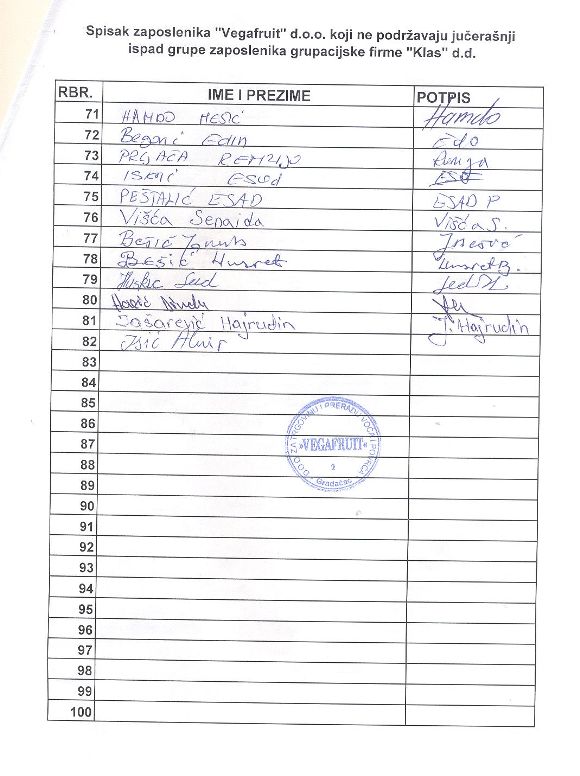 Spisak zaposlenika "Vegafruit" d.o.o. koji ne podržavaju jučerašnji
ispad grupe zaposlenika grupacijske firme "Klas" d.d.
RBR. IME I PREZIME POTPIS
71 HAMDO MESIĆ Hamdo
72 Begović Edin Edo
73 PRLJAČA REMZIJO Remzja
74 ISERIĆ ESED
75 PEŠTALIĆ ESAD ESAD P
76 Višća Senaida Višća S.
77 Bešić
78 BEŠIĆ Husret Husret B.
79 Sead
80
81 Šašarević Hajrudin J. Hajrudin
82 Isić Almir
83
84
85
86
87
88
89
90
91
92
93
94
95
96
97
98
99
100
D.O.O. ZA TRGOVINU I PRERADU VOĆA I POVRĆA
»VEGAFRUIT«
2
Gradačac